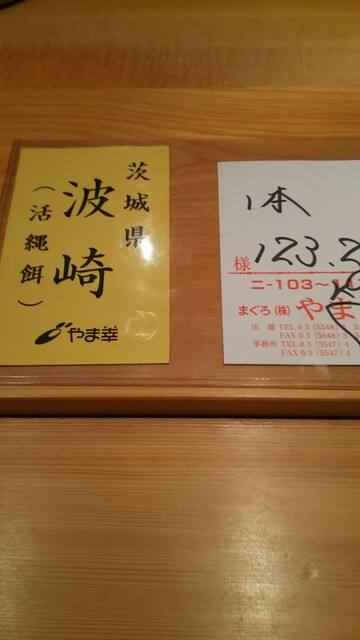 茨城県
波崎
(活縄餌)
やま幸
1本
様 123.2
ニ-103~
まぐろ(株)やま
店舗 TEL 03 (5548) 5
FAX 03 (5548) 5
事務所 TEL 03 (5547) 4
FAX 03 (5547) 4